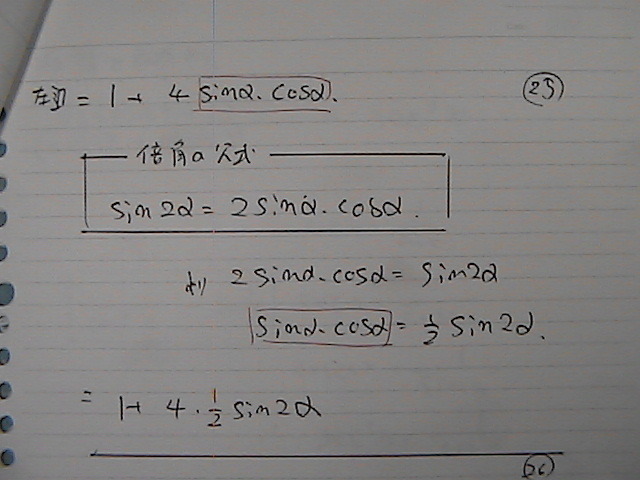 左辺 = 1 + 4 sinα・cosα.
(25)
倍角の公式
sin 2α = 2 sinα・cosα.
より 2 sinα・cosα = sin2α
sinα・cosα = 1/2 sin2α.
= 1 + 4・1/2 sin2α
(26)